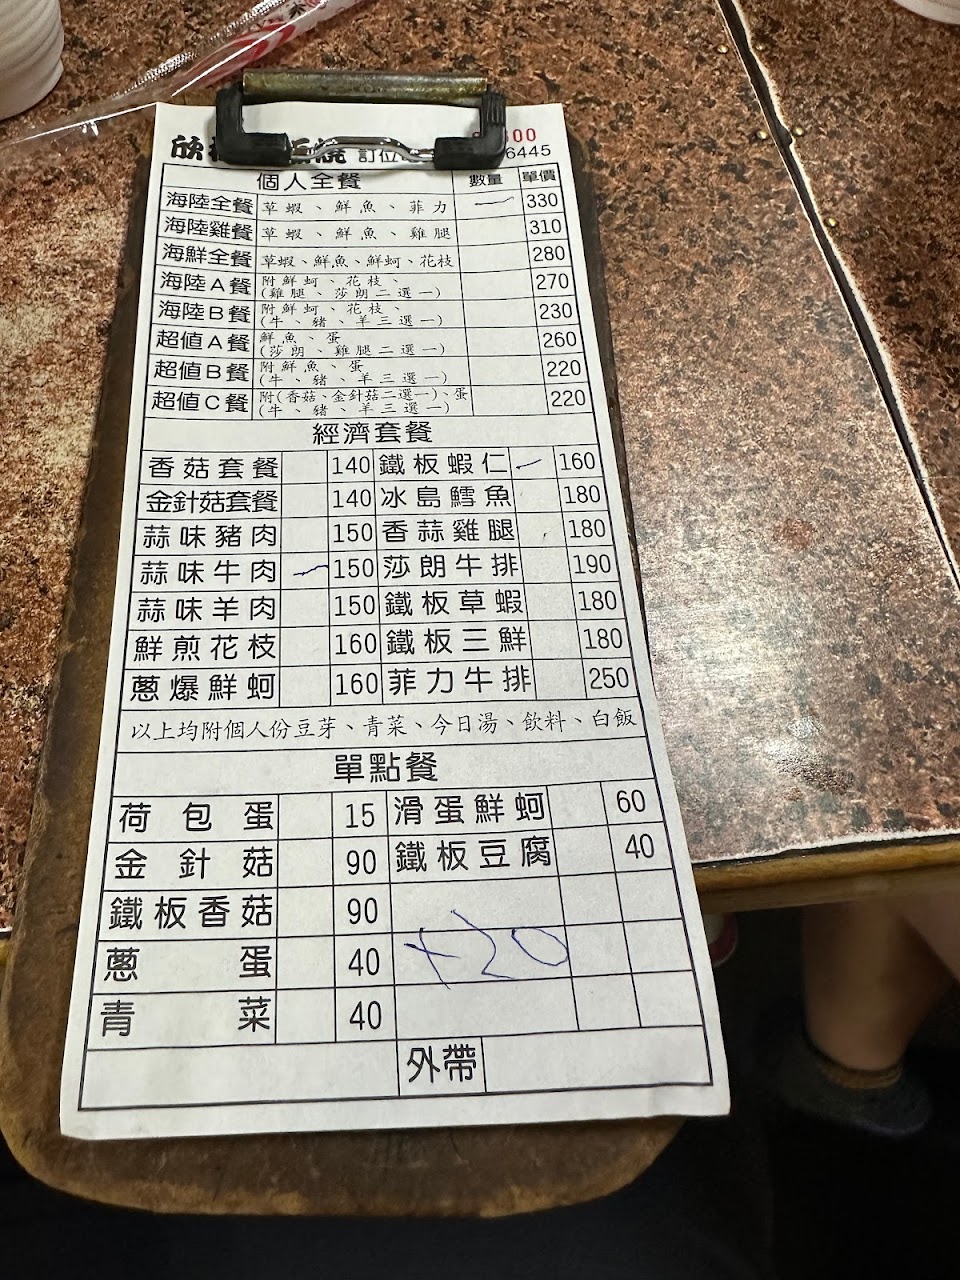 欣 燒 訂位 00
6445
個人全餐 數量 單價
海陸全餐 草蝦、鮮魚、菲力 一 330
海陸雞餐 草蝦、鮮魚、雞腿 310
海鮮全餐 草蝦、鮮魚、鮮蚵、花枝 280
海陸A餐 附鮮蚵、花枝、 270
(雞腿、莎朗二選一)
海陸B餐 附鮮蚵、花枝、 230
(牛、豬、羊三選一)
超值A餐 鮮魚、蛋 260
(莎朗、雞腿二選一)
超值B餐 附鮮魚、蛋 220
(牛、豬、羊三選一)
超值C餐 附(香菇、金針菇二選一)、蛋 220
(牛、豬、羊三選一)
經濟套餐
香菇套餐 140 鐵板蝦仁 一 160
金針菇套餐 140 冰島鱈魚 180
蒜味豬肉 150 香蒜雞腿 180
蒜味牛肉 一 150 莎朗牛排 190
蒜味羊肉 150 鐵板草蝦 180
鮮煎花枝 160 鐵板三鮮 180
蔥爆鮮蚵 160 菲力牛排 250
以上均附個人份豆芽、青菜、今日湯、飲料、白飯
單點餐
荷包蛋 15 滑蛋鮮蚵 60
金針菇 90 鐵板豆腐 40
鐵板香菇 90
蔥蛋 40
+20
青菜 40
外帶